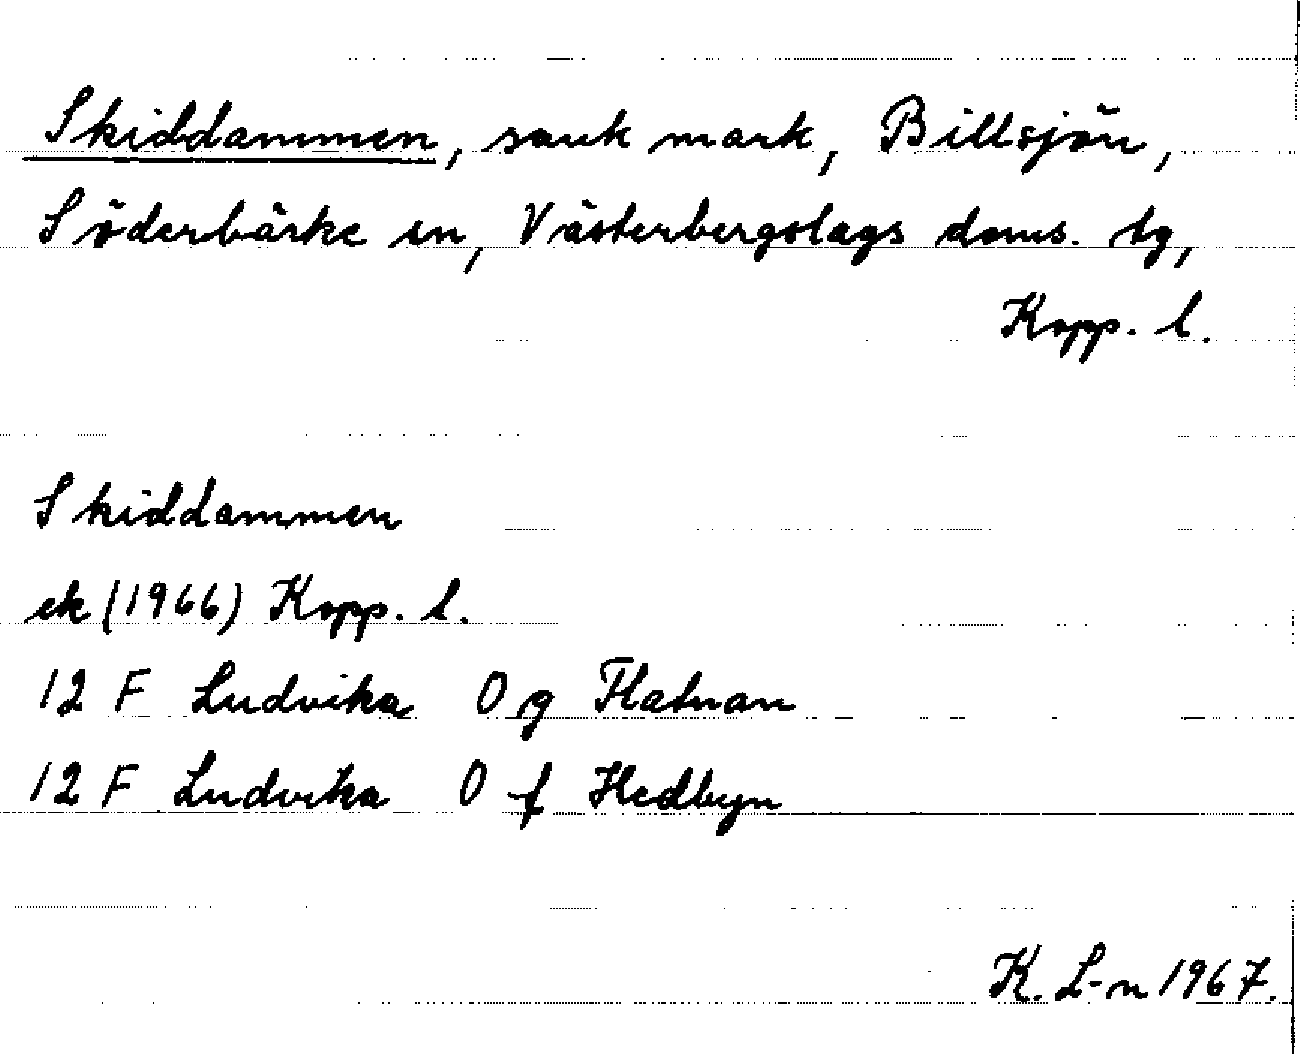 Skiddammen, sank mark, Billsjön,
Söderbärke sn, Västerbergslags doms. tg,
Kopp. l.
Skiddammen
ek (1966) Kopp. l.
12 F Ludvika 0 g Flatnan
12 F Ludvika 0 f Hedbyn
K. L-n 1967.